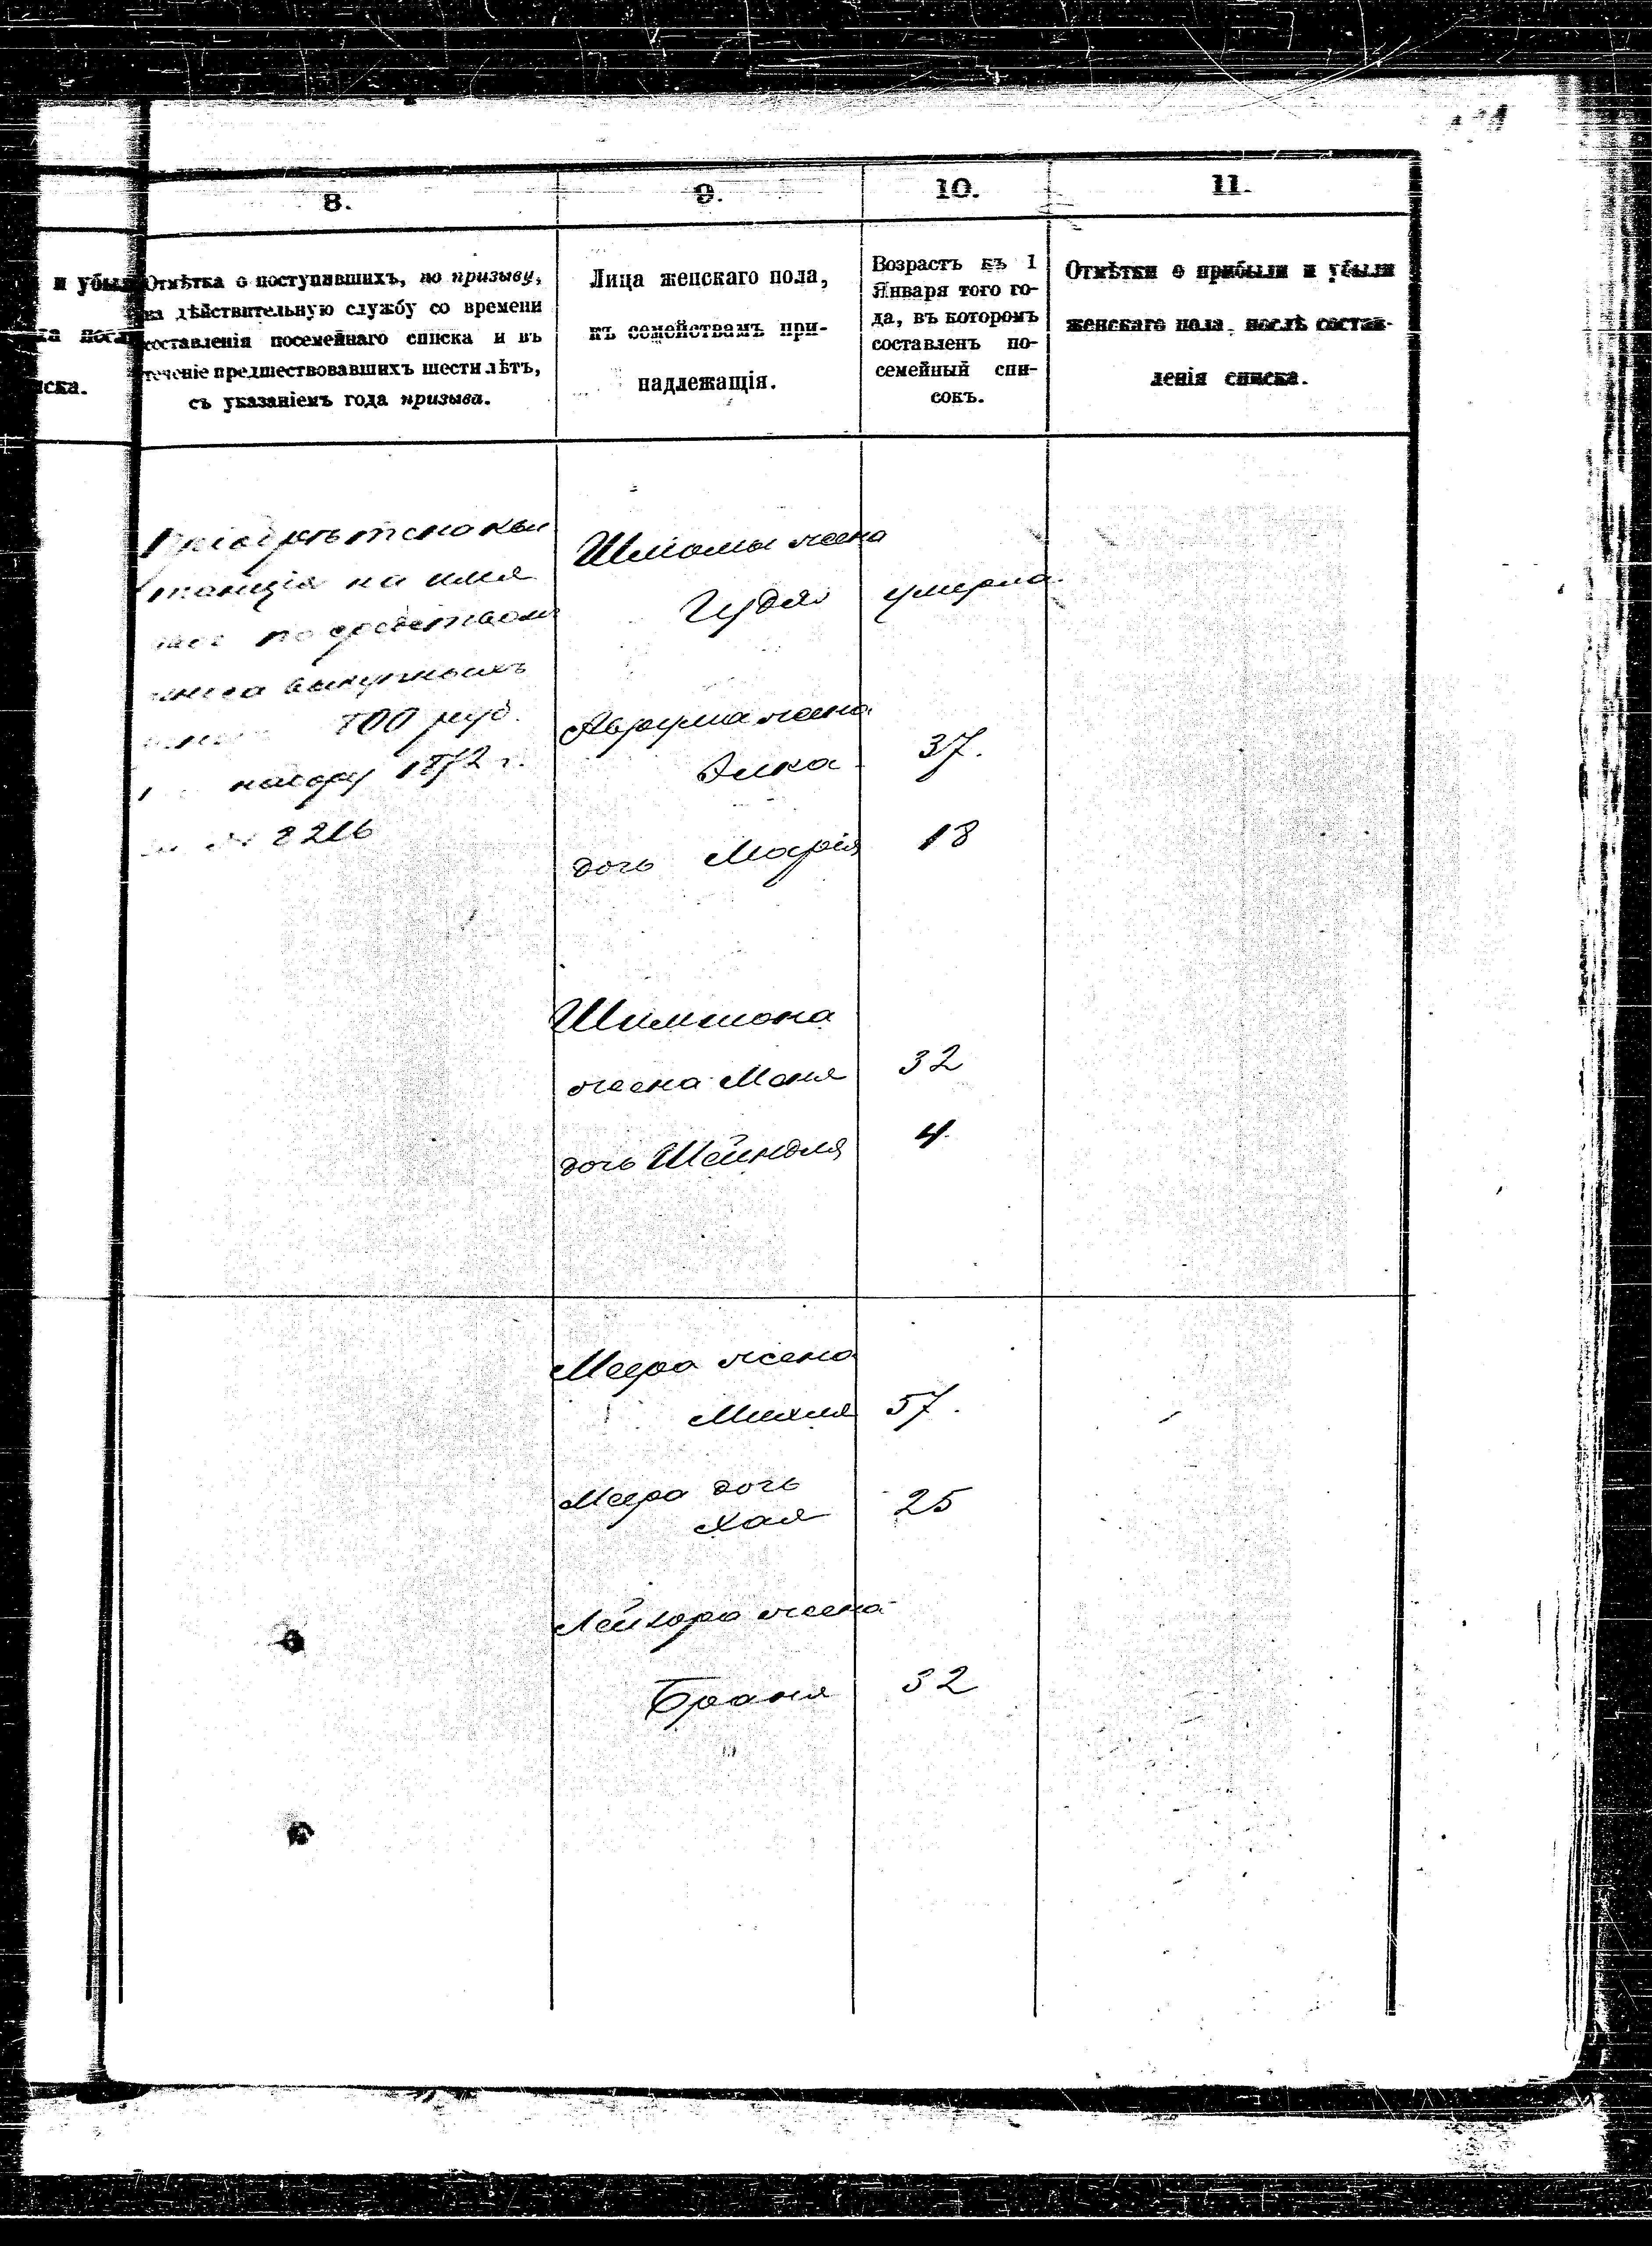 8.
9.
10.
11.
и убыли
ка посл
ска.
Отмѣтка о поступившихъ, по призыву,
на дѣйствительную службу со времени
составленія посемейнаго списка и въ
теченіе предшествовавшихъ шести лѣтъ,
съ указаніемъ года призыва.
Лица женскаго пола,
къ семействамъ при-
надлежащія.
Возрастъ къ 1
Января того го-
да, въ которомъ
составленъ по-
семейный спи-
сокъ.
Отмѣтки о прибыли и убыли
женскаго пола, послѣ состав-
ленія списка.
на имя
посредствомъ
взноса выкупныхъ
800 руб.
набору 1872 г.
№ 8216
Шліомы жена
Гудя умерла
Аврума жена
Элка 37.
дочь Марія 18
Шимшона
жена Маня 32
дочь Шейндля 4.
Меера жена
Михля 57.
Меера дочь
Хая 25
Лейзора жена
Броня 32